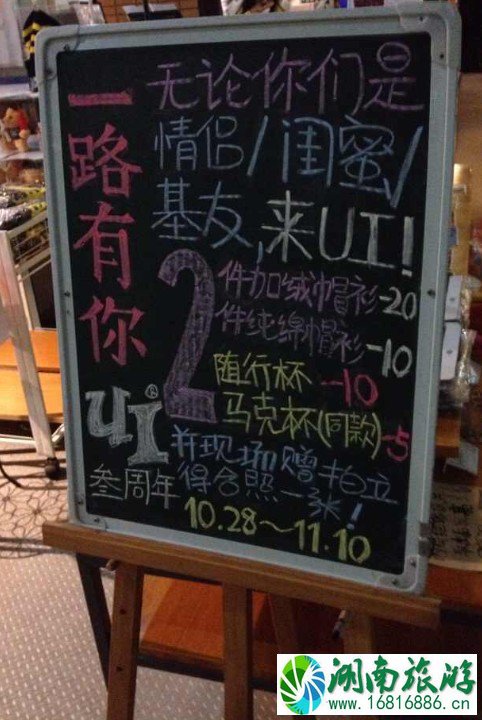 一路有你
UI®
叁周年
无论你们是
情侣/闺蜜/
基友,来UI!
2
件加绒帽衫-20
件纯绵帽衫-10
随行杯-10
马克杯(同款)-5
并现场赠拍立
得合照一张!
10.28~11.10
湖南旅游
www.16816886.cn